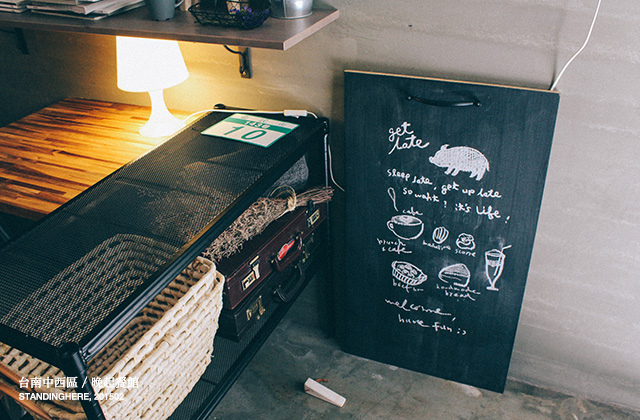 get
late
sleep late, get up late
so what? it's life!
cafe
brunch
& cafe
madeleine
scone
handmade
bread
welcome,
have fun :)
10
台南中西區 / 晚起餐館
STANDINGHERE, 201502